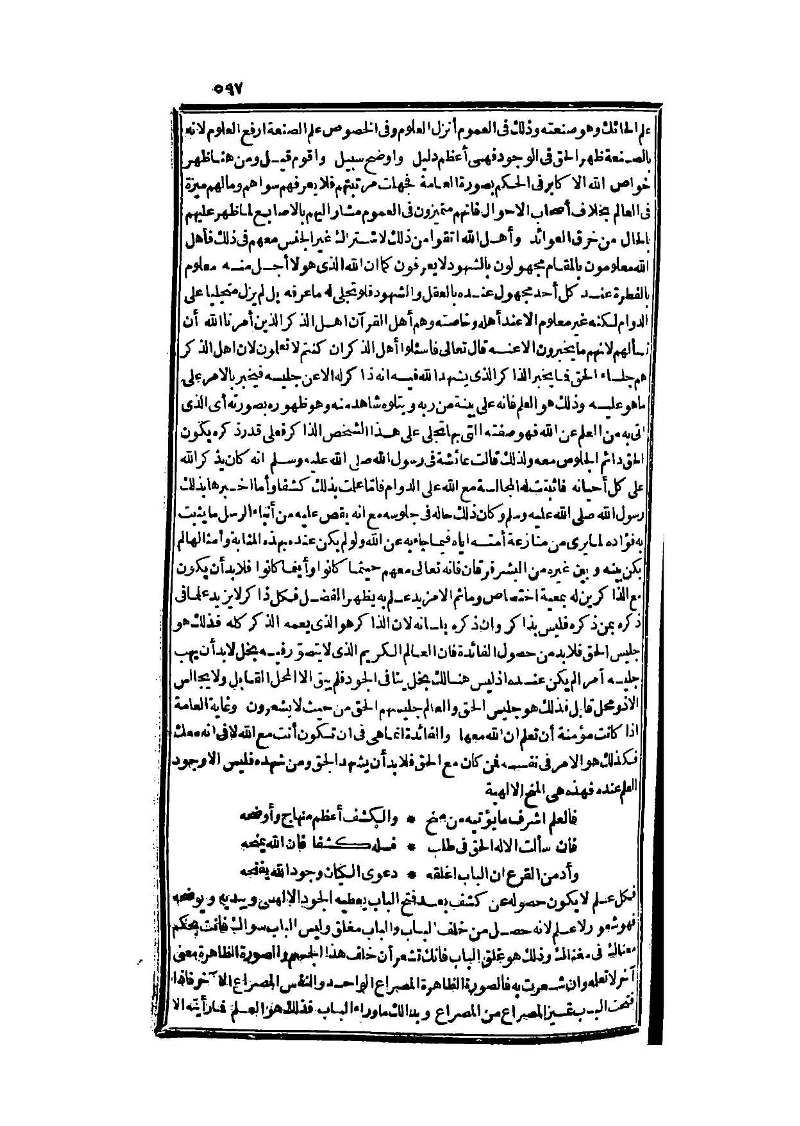 ٥٩٧
علم الحائك وهو صنعته وذلك فى العموم أنزل العلوم وفى الخصوص علم الصنعة ارفع العلوم لانه
بالصنعة ظهر الحق فى الوجود فهى أعظم دليل واوضح سبيل واقوم قيل ومن هنا ظهر
خواص الله الاكابر فى الحكم بصورة العامة فجهلت مرتبتهم فلا يعرفهم سواهم وما لهم ميزة
فى العالم بخلاف أصحاب الاحوال فانهم متميزون فى العموم مشار اليهم بالاصابع لما ظهر عليهم
بالحال من خرق العوائد وأهل الله انفوا من ذلك لاشتراك غير الجنس معهم فى ذلك فأهل
الله معلومون بالمقام مجهولون بالشهود لا يعرفون كما ان الله الذى هو لا أجل منه معلوم
بالفطرة عند كل أحد مجهول عنده بالعقل والشهود فلو تجلى له ما عرفه بل لم يزل متجليا على
الدوام لكنه غير معلوم الا عند أهله وخاصته وهم أهل القرآن اهل الذكر الذين أمرنا الله أن
نسألهم لانهم ما يخبرون الا عنه قال تعالى فاسئلوا أهل الذكر ان كنتم لا تعلمون لان اهل الذكر
هم جلساء الحق فما يخبر الذاكر الذى يشهد الله فيه انه ذاكر له الا عن جليسه فيخبر بالامر على
ما هو عليه وذلك هو العلم فانه على بينة من ربه ويتلوه شاهد منه وهو ظهوره بصورته أى الذى
اتى به من العلم عن الله فهو صفته التى بها تجلى على هذا الشخص الذاكر فعلى قدر ذكره يكون
الحق دائم الجلوس معه ولذلك قالت عائشة فى رسول الله صلى الله عليه وسلم انه كان يذكر الله
على كل أحيانه فاثبتت له المجالسة مع الله على الدوام فاما علمت بذلك كشفا واما اخبرها بذلك
رسول الله صلى الله عليه وسلم وكان ذلك حاله فى جلوسه مع انه يقص عليه من أنباء الرسل ما يثبت
به فؤاده لما يرى من منازعة أمته اياه فيما جاء به عن الله ولو لم يكن عنده بهذه المثابة وأمثالها لم
يكن بينه وبين غيره من البشر فرقان فانه تعالى معهم حيثما كانوا وأينما كانوا فلابد أن يكون
مع الذاكرين له بمعية اختصاص وما ثم الا مزيد علم به يظهر الفضل فكل ذاكر لا يزيد علما فى
ذكره بمن ذكره فليس بذاكر وان ذكره بلسانه لان الذاكر هو الذى يعمه الذكر كله فذلك هو
جليس الحق فلابد من حصول الفائدة فان العالم الكريم الذى لا يتصور فيه بخل لابد أن يهب
جليسه أمرا لم يكن عنده اذ ليس هنالك بخل ينافى الجود فلم يبق الا المحل القابل ولا يجالس
الا ذو محل قابل فذلك هو جليس الحق والعالم جليسهم الحق من حيث لا يشعرون وغاية العامة
اذا كانت مؤمنة أن تعلم ان الله معها والفائدة انما هى فى ان تكون أنت مع الله لا فى انه معك
فكذلك هو الامر فى نفسه فمن كان مع الحق فلابد أن يشهد الحق ومن شهده فليس الا وجود
العلم عنده فهذه هى المنح الالهية
فالعلم اشرف ما يؤتيه من منح * والكشف أعظم منهاج وأوضحه
فان سألت الاله الحق فى طلب * فسله كشفا فان الله يمنحه
وأدمن القرع ان الباب اغلقه * دعوى الكيان وجود الله يفتحه
فكل علم لا يكون حصوله عن كشف بعد فتح الباب يعطيه الجود الالهى ويبديه ويوضحه
فهو شعور لا علم لانه حصل من خلف الباب والباب مغلق وليس الباب سواك فأنت بحكم
معناك فى مغناك وذلك هو غلق الباب فانك تشعر أن خلف هذا الجسم والصورة الظاهرة معنى
آخر لا تعلمه وان شعرت به فالصورة الظاهرة المصراع الواحد والنفس المصراع الآخر فاذا
فتحت الباب تميز المصراع من المصراع وبدا لك ما وراء الباب فذلك هو العلم فما رأيته الا